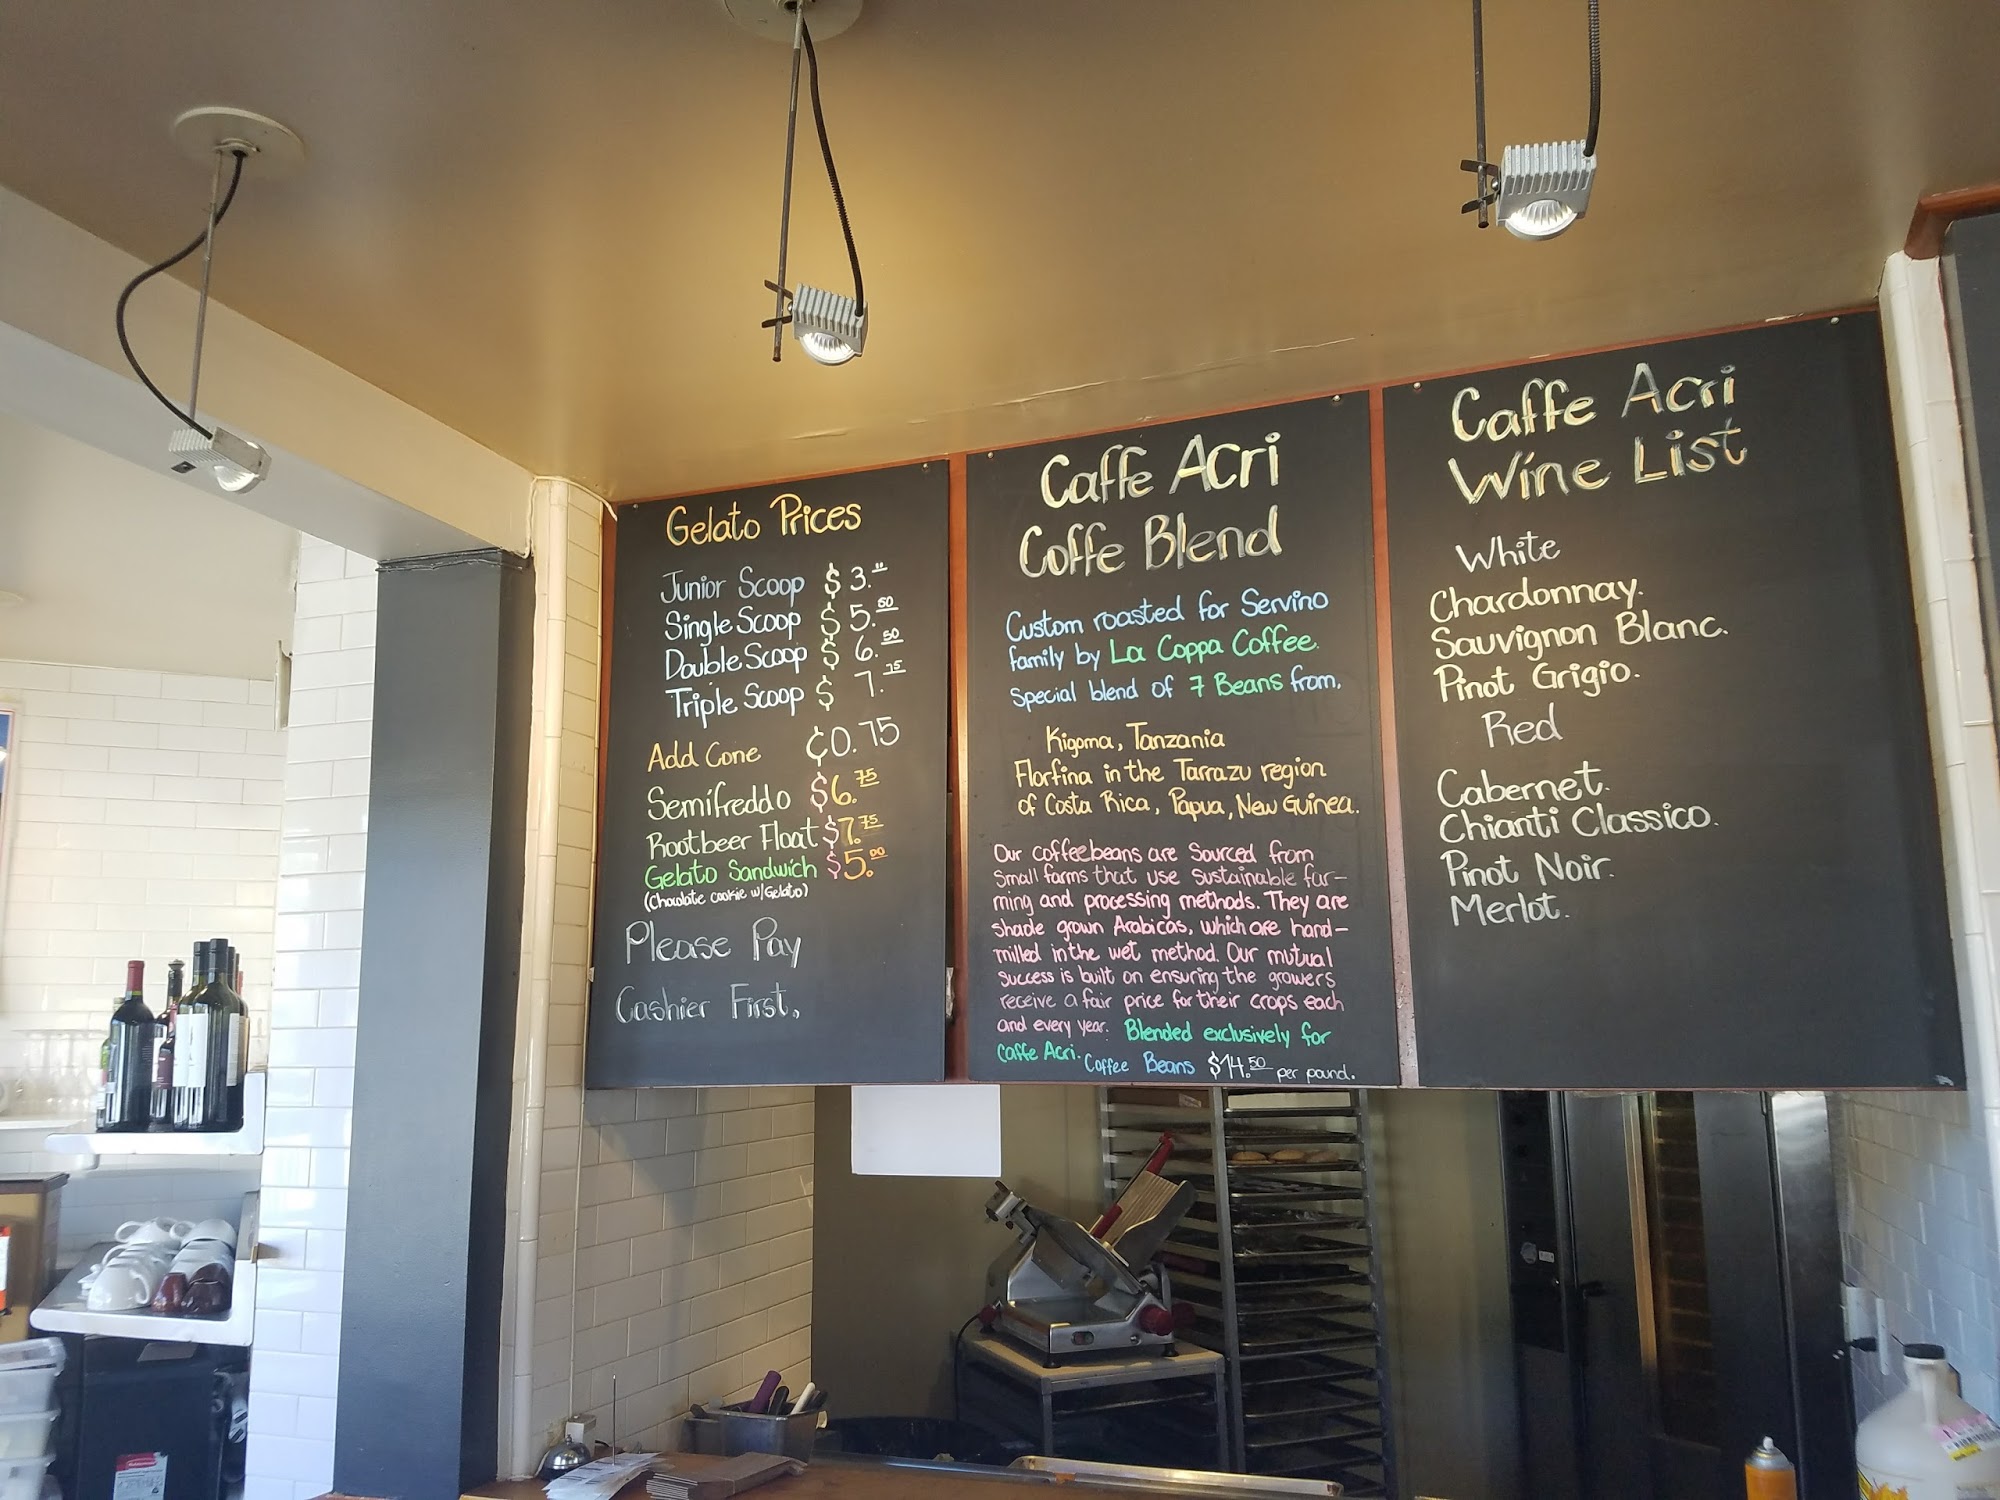 Gelato Prices
Junior Scoop $3.
Single Scoop $5.50
Double Scoop $6.50
Triple Scoop $7.75
Add Cone ¢0.75
Semifreddo $6.75
Rootbeer Float $7.75
Gelato Sandwich $5.00
(Chocolate cookie w/Gelato)
Please Pay
Cashier First.
Caffe Acri
Coffe Blend
Custom roasted for Servino
family by La Coppa Coffee.
Special blend of 7 Beans from,
Kigoma, Tanzania
Florfina in the Tarrazu region
of Costa Rica, Papua, New Guinea.
Our coffee beans are Sourced from
Small farms that use sustainable far-
ming and processing methods. They are
shade grown Arabicas, which are hand-
milled in the wet method. Our mutual
success is built on ensuring the growers
receive a fair price for their crops each
and every year. Blended exclusively for
Caffe Acri. Coffee Beans $14.50 per pound.
Caffe Acri
Wine List
White
Chardonnay.
Sauvignon Blanc.
Pinot Grigio.
Red
Cabernet.
Chianti Classico.
Pinot Noir.
Merlot.